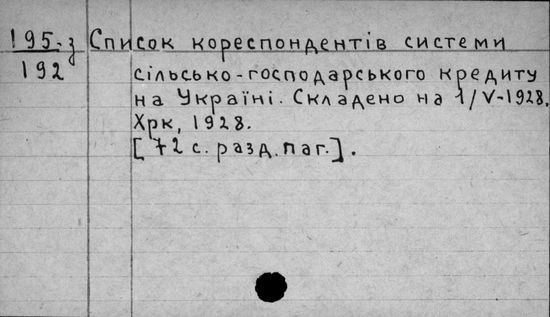 195-з Список кореспондентів системи
192 сільсько-господарського кредиту
на Україні. Складено на 1/V-1928.
Хрк, 1928.
[72 с. разд. паг.].